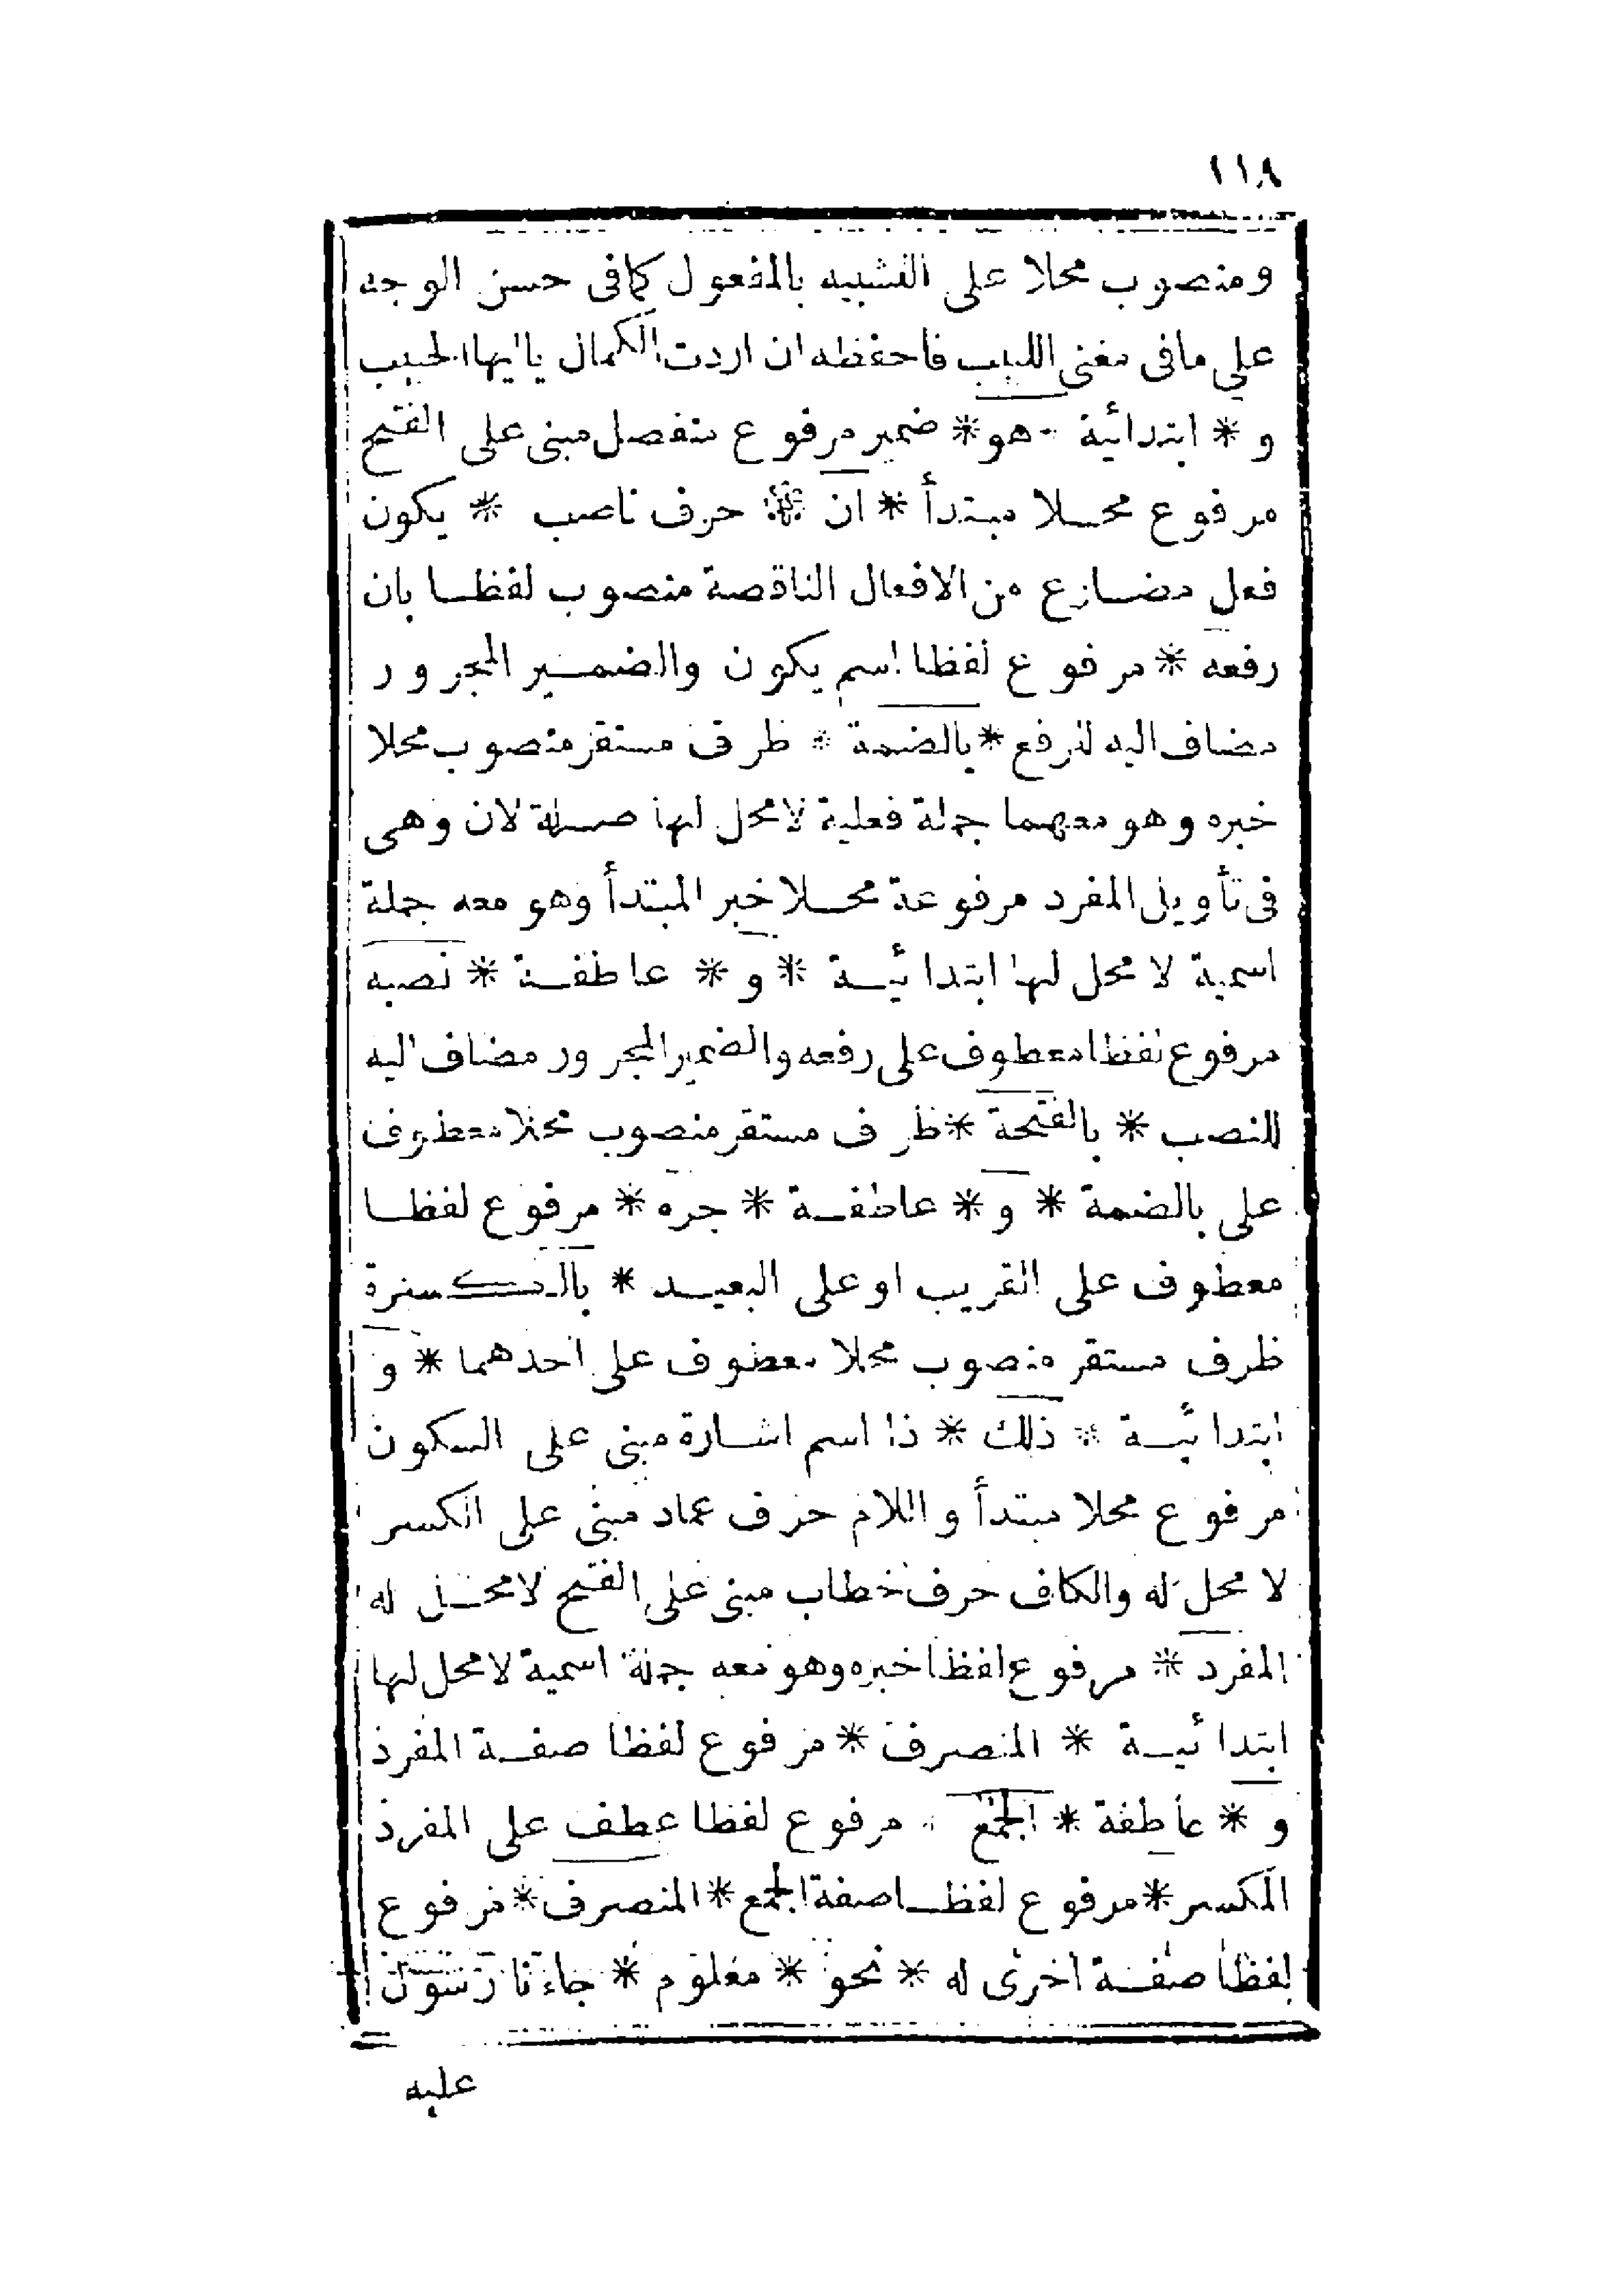 ١١٨
ومنصوب محلا على التشبيه بالمفعول كمافى حسن الوجه
على مافى مغنى اللبيب فاحفظه ان اردت الكمال ياايها الحبيب
و * ابتدائية * هو * ضمير مرفوع منفصل مبنى على الفتح
مرفوع محلا مبتدأ * ان * حرف ناصب * يكون
فعل مضارع من الافعال الناقصة منصوب لفظا بان
رفعه * مرفوع لفظا اسم يكون والضمير المجرور
مضاف اليه للرفع * بالضمة * ظرف مستقر منصوب محلا
خبره وهو معهما جملة فعلية لامحل لها صلة لان وهى
فى تأويل المفرد مرفوعة محلا خبر المبتدأ وهو معه جملة
اسمية لا محل لها ابتدائية * و * عاطفة * نصبه
مرفوع لفظا معطوف على رفعه والضمير المجرور مضاف اليه
للنصب * بالفتحة * ظرف مستقر منصوب محلا معطوف
على بالضمة * و * عاطفة * جره * مرفوع لفظا
معطوف على القريب اوعلى البعيد * بالكسرة
ظرف مستقر منصوب محلا معطوف على احدهما * و
ابتدائية * ذلك * ذا اسم اشارة مبنى على السكون
مرفوع محلا مبتدأ واللام حرف عماد مبنى على الكسر
لا محل له والكاف حرف خطاب مبنى على الفتح لامحل له
المفرد * مرفوع لفظا خبره وهو معه جملة اسمية لامحل لها
ابتدائية * المنصرف * مرفوع لفظا صفة المفرد
و * عاطفة * الجمع * مرفوع لفظا عطف على المفرد
المكسر * مرفوع لفظا صفة الجمع * المنصرف * مرفوع
لفظا صفة اخرى له * نحو * معلوم * جاءنا رسول
عليه